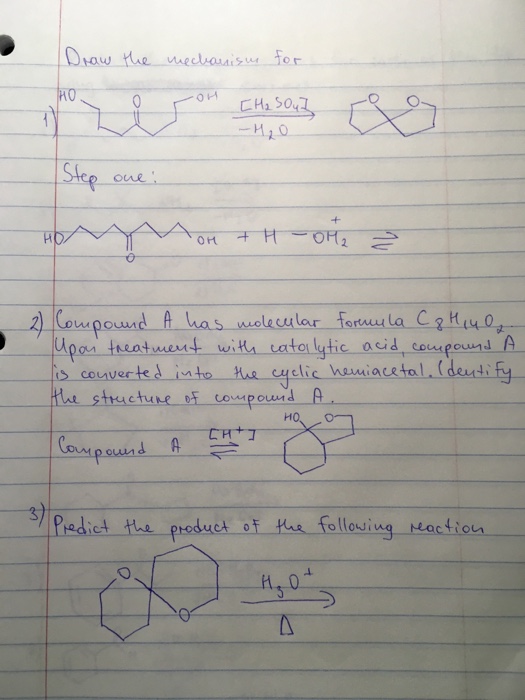 Draw the mechanism for
1) HO O OH [H2SO4] -H2O O O
Step one:
HO O OH + H - OH2 + ⇌
2) Compound A has molecular formula C8H14O2.
Upon treatment with catalytic acid, compound A
is converted into the cyclic hemiacetal. Identify
the structure of compound A.
Compound A [H+] ⇌ HO O
3) Predict the product of the following reaction
O O H3O+ Δ